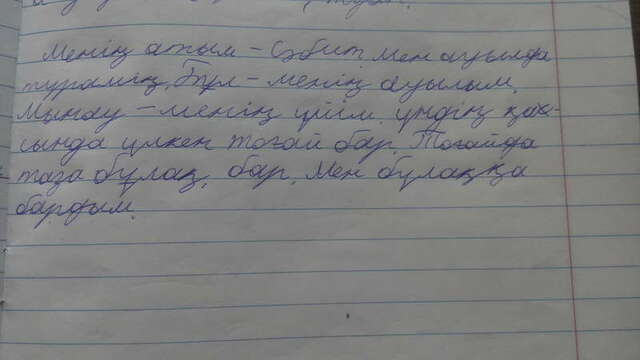 Менің атым - Сәбит. Мен ауылда
тұрамын. Бұл - менің ауылым.
Мынау - менің үйім. үйдің қас-
ында үлкен тоғай бар. Тоғайда
таза бұлақ, бар. Мен бұлаққа
бардым.